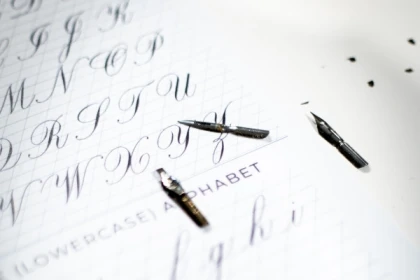 I J K
M N O P
Q R S T U
V W X Y Z
(LOWERCASE) ALPHABET
g h i